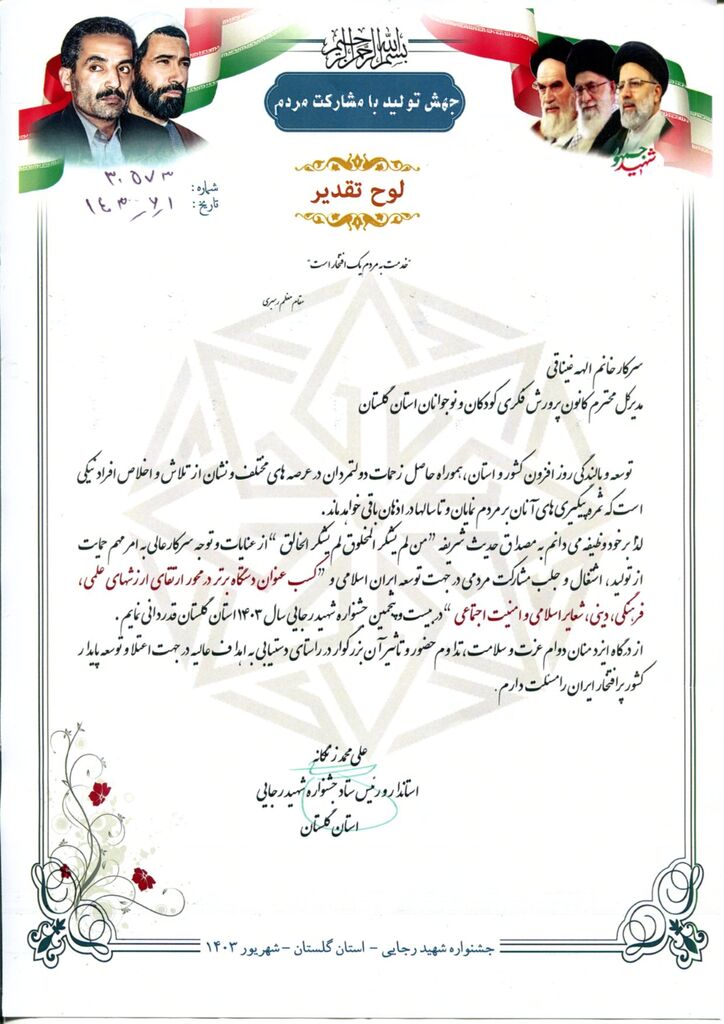 بسم الله الرحمن الرحیم
جهش تولید با مشارکت مردم
شهید جمهور
لوح تقدیر
شماره: ۳۰۵۷۳
تاریخ: ۱۴۰۳/۶/۱
"خدمت به مردم یک افتخار است"
مقام معظم رهبری
سرکار خانم الهه عیناقی
مدیرکل محترم کانون پرورش فکری کودکان و نوجوانان استان گلستان
توسعه و بالندگی روز افزون کشور و استان، همواره حاصل زحمات دولتمردان در عرصه های مختلف و نشان از تلاش و اخلاص افراد نیکی
است که ثمره پیگیری های آنان بر مردم نمایان و تا سالها در اذهان باقی خواهد ماند.
لذا بر خود وظیفه می دانم به مصداق حدیث شریفه "من لم یشکر المخلوق لم یشکر الخالق" از عنایات و توجه سرکار عالی به امر مهم حمایت
از تولید، اشتغال و جلب مشارکت مردمی در جهت توسعه ایران اسلامی و "کسب عنوان دستگاه برتر در محور ارتقای ارزشهای علمی،
فرهنگی، دینی، شعایر اسلامی و امنیت اجتماعی" در بیست و پنجمین جشنواره شهید رجایی سال ۱۴۰۳ استان گلستان قدردانی نمایم.
از درگاه ایزد منان دوام عزت و سلامت، تداوم حضور و تاثیر آن بزرگوار در راستای دستیابی به اهداف عالیه در جهت اعتلا و توسعه پایدار
کشور پر افتخار ایران را مسئلت دارم.
علی محمد زنگانه
استاندار و رئیس ستاد جشنواره شهید رجایی
استان گلستان
جشنواره شهید رجایی - استان گلستان - شهریور ۱۴۰۳